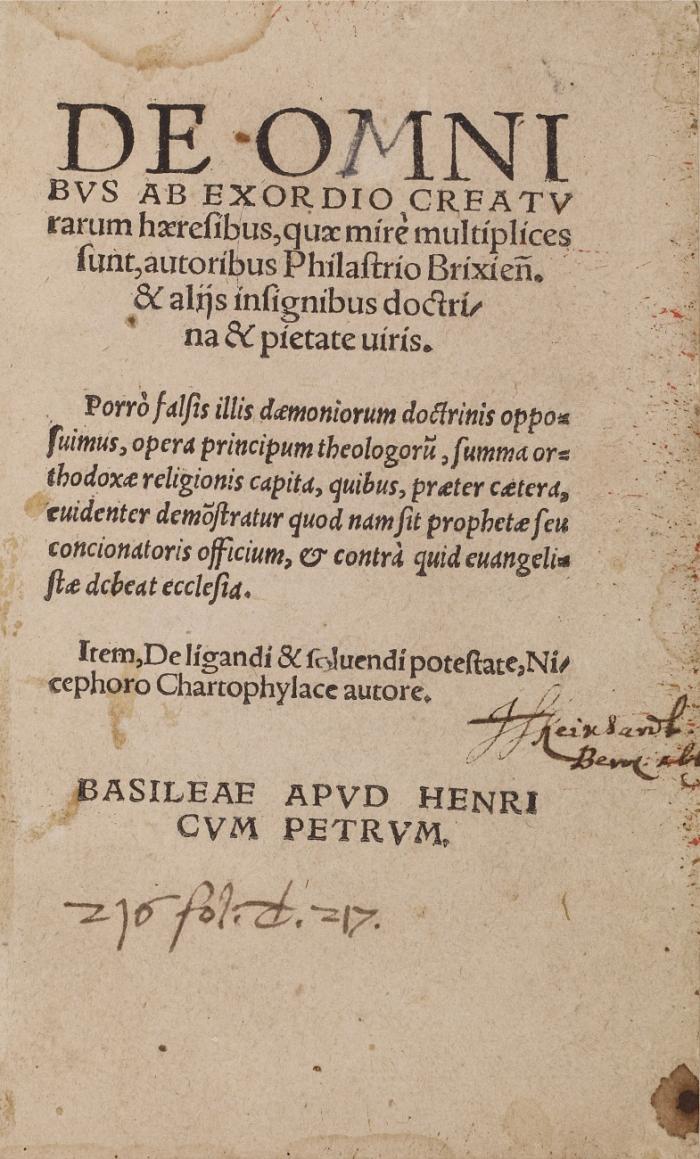 DE OMNI
BVS AB EXORDIO CREATV
rarum hæresibus, quæ mirè multiplices
sunt, autoribus Philastrio Brixien̄.
& alijs insignibus doctri/
na & pietate uiris.
Porrò falsis illis dæmoniorum doctrinis oppo=
suimus, opera principum theologorū, summa or=
thodoxæ religionis capita, quibus, præter cætera,
euidenter demõstratur quod nam sit prophetæ seu
concionatoris officium, & contrà quid euangeli=
stæ debeat ecclesia.
Item, De ligandi & soluendi potestate, Ni/
cephoro Chartophylace autore.
BASILEAE APVD HENRI
CVM PETRVM.
216 fol. d. 217.